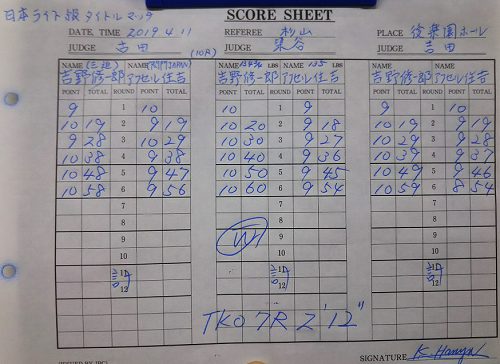 日本ライト級タイトルマッチ SCORE SHEET
DATE, TIME 2019 4 11 REFEREE 杉山 PLACE 後楽園ホール
JUDGE 吉田 (10R) JUDGE 染谷 JUDGE 吉田
NAME (三迫) NAME NAME LBS NAME 135 LBS NAME NAME
吉野修一郎 アクセル住吉 吉野修一郎 アクセル住吉 吉野修一郎 アクセル住吉
POINT TOTAL ROUND POINT TOTAL POINT TOTAL ROUND POINT TOTAL POINT TOTAL ROUND POINT TOTAL
9 1 10 10 1 9 9 1 10
10 19 2 9 19 10 20 2 9 18 10 19 2 9 19
9 28 3 10 29 10 30 3 9 27 10 29 3 9 28
10 38 4 9 38 10 40 4 9 36 10 39 4 9 37
10 48 5 9 47 10 50 5 9 45 10 49 5 9 46
10 58 6 9 56 10 60 6 9 54 10 59 6 8 54
7 7 7
8 8 8
9 W 9 9
10 10 10
計11 計11 計11
12 12 12
TKO 7R 2'12"
SIGNATURE